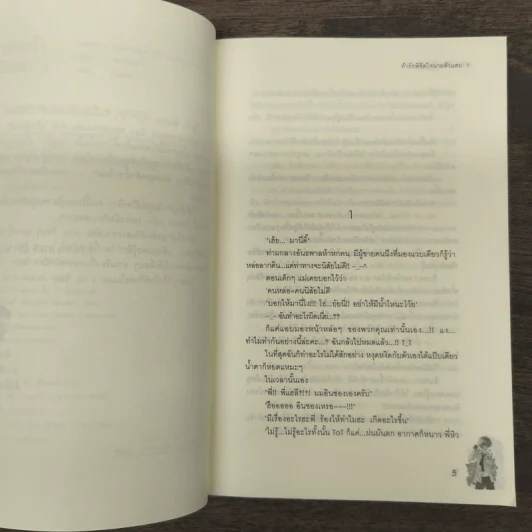 1
'เฮ้ย... มานี่ดิ๊'
ท่ามกลางอันธพาลห้าหกคน มีผู้ชายคนนึงที่มองแวบเดียวก็รู้ว่า
หล่อลากดิน...แต่ท่าทางจะนิสัยไม่ดี!! -_-^
ตอนเด็กๆ แม่เคยบอกไว้ว่า
'คนหล่อ=คนนิสัยไม่ดี'
'บอกให้มานี่ไง!!! โธ่...ยัยนี่!! อย่าให้มีน้ำโหนะโว้ย'
-_- ฉันทำอะไรผิดเนี่ย...??
ก็แค่แอบมองหน้าหล่อๆ ของพวกคุณเท่านั้นเอง...!! แง...
ทำไมทำกันอย่างนี้ล่ะคะ...? ฉันกลัวไปหมดแล้ว...!! T_T
ในที่สุดฉันก็ทำอะไรไม่ได้สักอย่าง หงุดหงิดกับตัวเองได้แป๊บเดียว
น้ำตาก็หยดแหมะๆ
ในเวลานั้นเอง
'พี่!! พี่แฮลี!?!? ผมอินซองเองครับ'
'ฮืออออออ อินซองเหรอ~~~!!!'
'มีเรื่องอะไรฮะพี่ ร้องไห้ทำไมฮะ เกิดอะไรขึ้น'
'ไม่รู้...ไม่รู้อะไรทั้งนั้น ToT ก็แค่...ฝนมันตก อากาศก็หนาว พี่หิว
5